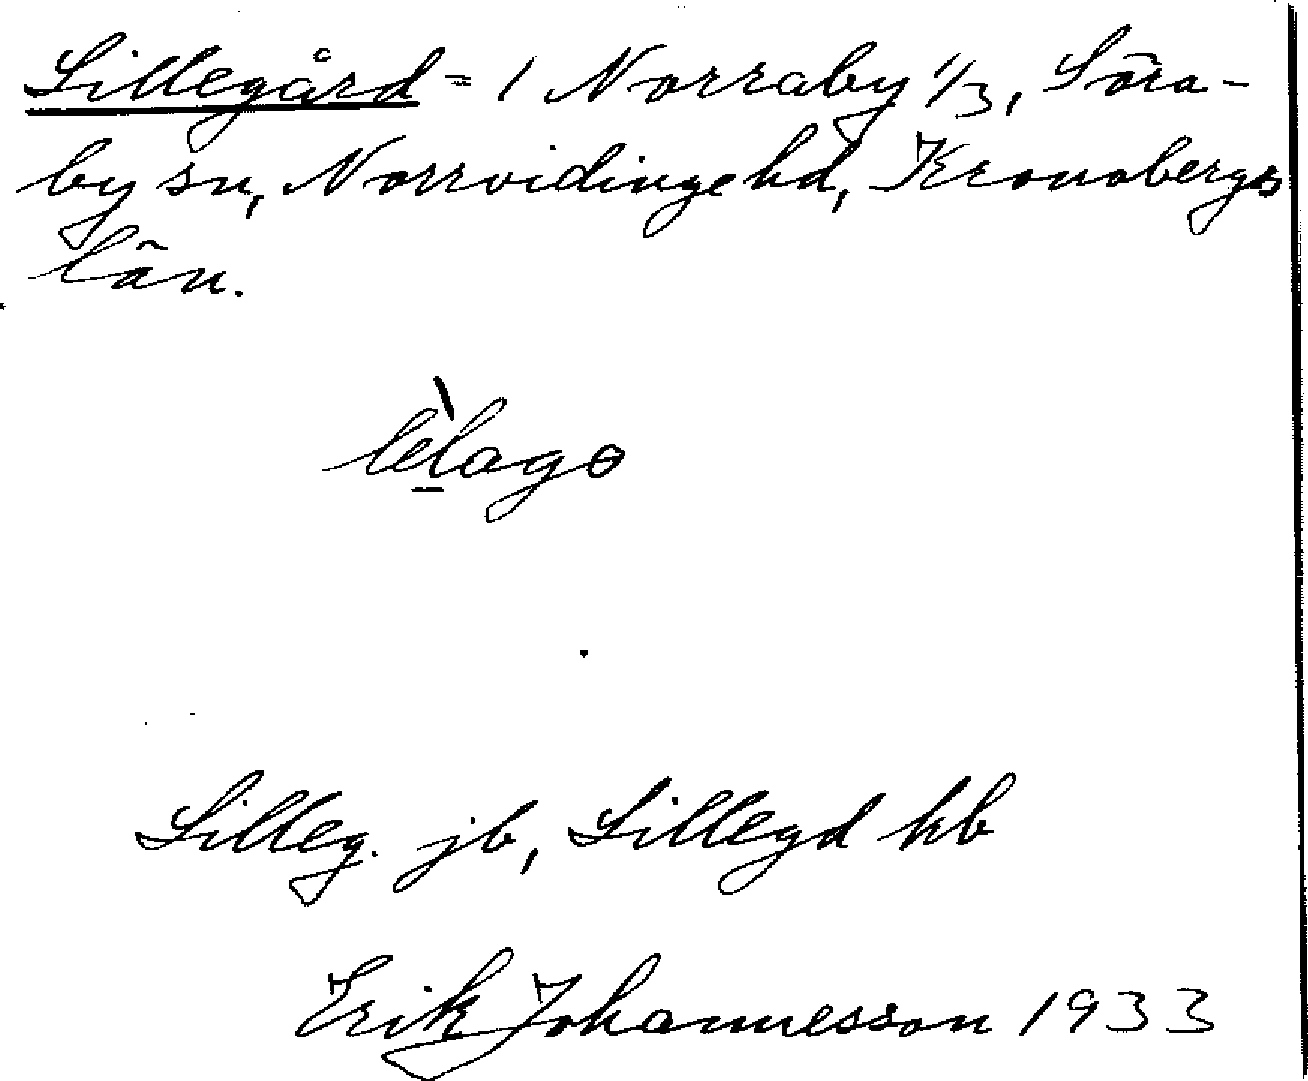 Lillegård = 1 Norraby 1/3, Söra-
by sn, Norrvidinge hd, Kronobergs
län.
Lilleg. jb, Lillegd kb
Erik Johannesson 1933